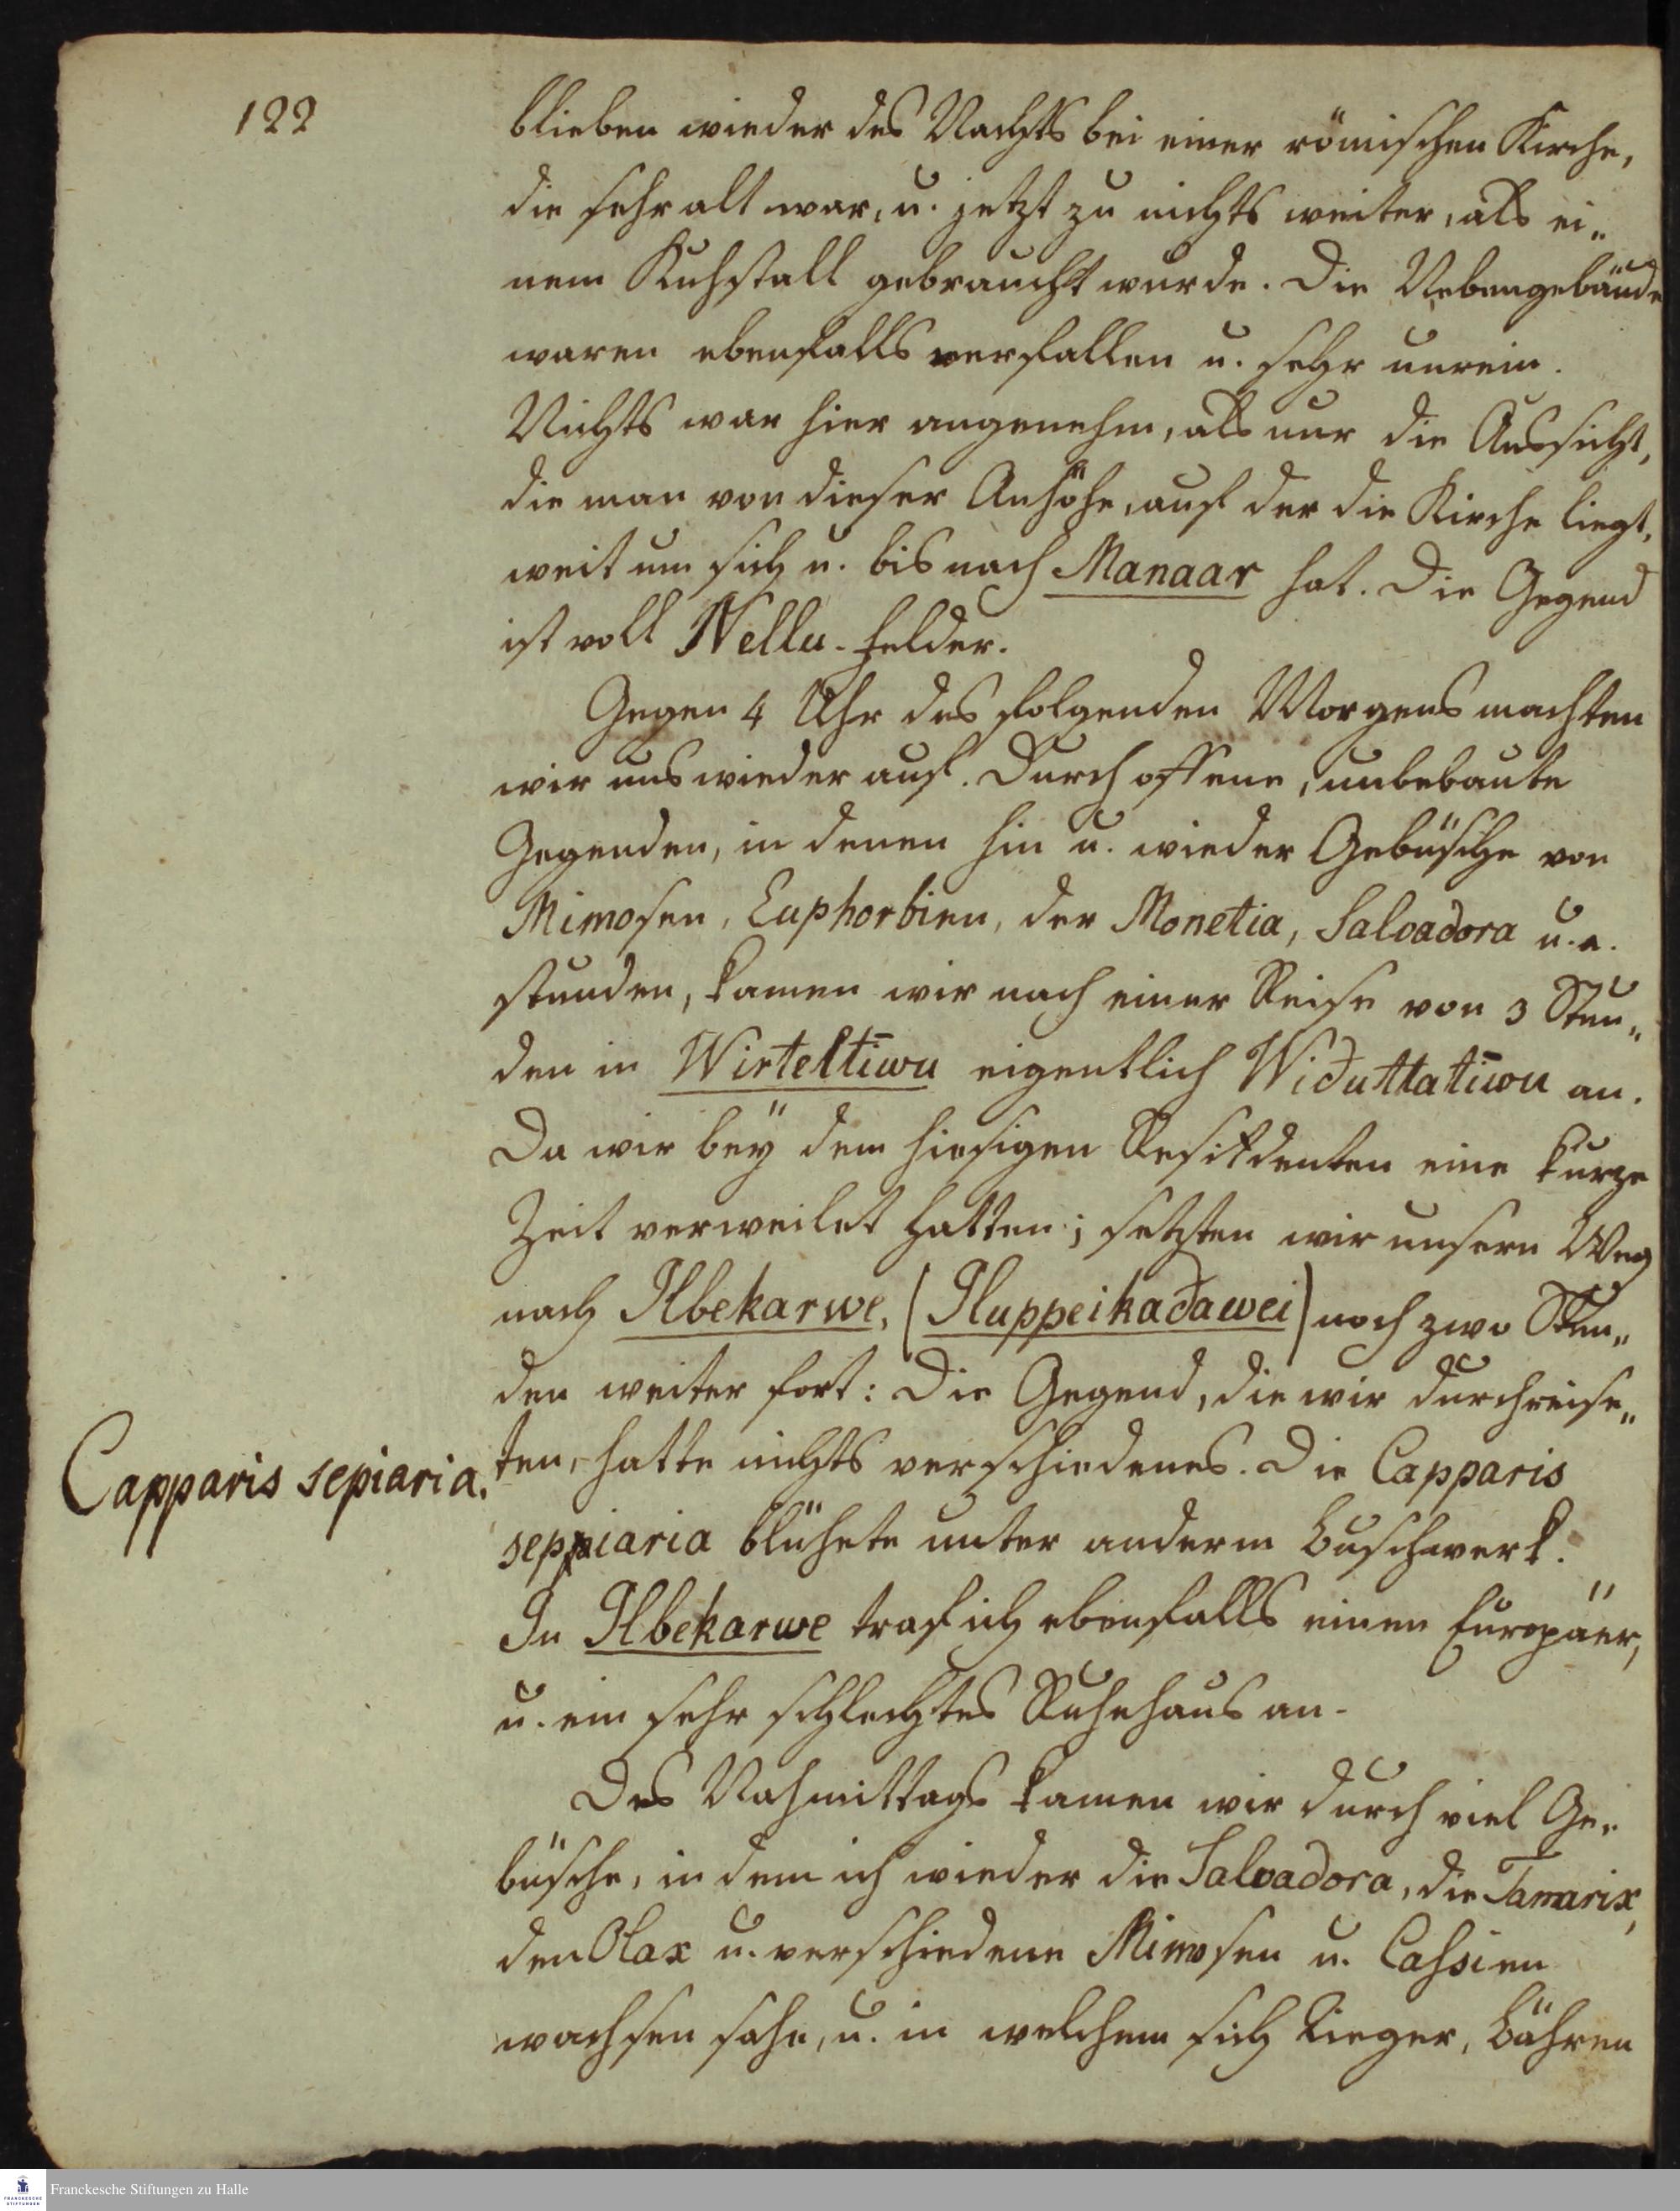 122
blieben wieder des Nachts bei einer römischen Kirche,
die sehr alt war, u. jetzt zu nichts weiter, als ei„
nem Kuhstall gebraucht wurde. Die Nebengebäude
waren ebenfalls verfallen u. sehr unrein.
Nichts war hier angenehm, als nur die Aussicht,
die man von dieser Anhöhe, auf der die Kirche liegt,
weit um sich u. bis nach Manaar hat. Die Gegend
ist voll Nellu-Felder.
Gegen 4 Uhr des folgenden Morgens machten
wir uns wieder auf. Durch offene, unbebaute
Gegenden, in denen hin u. wieder Gebüsche von
Mimosen, Euphorbien, der Monetia, Salvadora u. a.
stunden, kamen wir nach einer Reise von 3 Stun„
den in Wirteltīwu eigentlich Widuttatīwu an.
Da wir beÿ dem hiesigen Residenten eine kurze
Zeit verweilet hatten; setzten wir unsern Weg
nach Ilbekarwe, (Iluppeikadawei) noch zwo Stun„
den weiter fort: Die Gegend, die wir durchreise„
ten, hatte nichts verschiedenes. Die Capparis
Capparis sepiaria.
sepiaria blühete unter anderm Buschwerk.
In Ilbekarwe traf ich ebenfalls einen Europäer,
u. ein sehr schlechtes Ruhehaus an.
Des Nachmittags kamen wir durch viel Ge„
büsche, in dem ich wieder die Salvadora, die Tamarix,
den Olax u. verschiedene Mimosen u. Cassien
wachsen sahe, u. in welchem sich Tieger, Bähren
Franckesche Stiftungen zu Halle